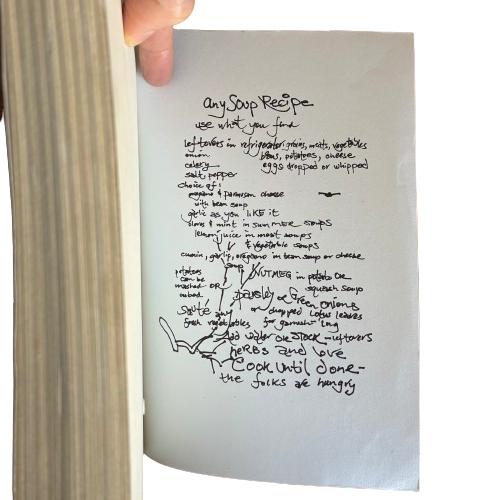 any Soup Recipe
use what you find
leftovers in refrigerator: grains, meats, vegetables
onion beans, potatoes, cheese
celery eggs dropped or whipped
salt, pepper
choice of:
oregano & parmesan cheese
with bean soup
garlic as you LIKE it
& mint in summer soups
lemon juice in most soups
& vegetable soups
cumin, garlic, oregano in bean soup or cheese
soup
potatoes NUTMEG in potato OR
can be squash soup
mashed OR
cubed parsley or Green onions
Sauté any or chopped Lotus leaves
fresh vegetables for garnish
Add water or stock - leftovers
herbs and love
Cook until done-
the folks are hungry